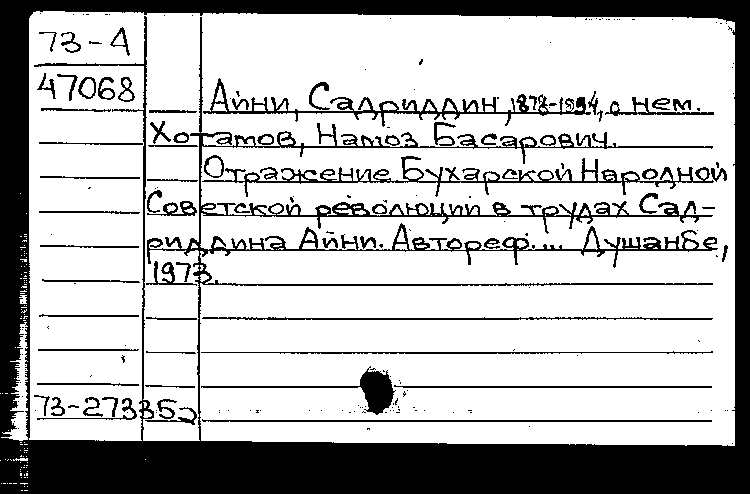 73-А
47068
Айни, Садриддин, 1878-1954, о нем.
Хотамов, Намоз Басарович.
Отражение Бухарской Народной
Советской революции в трудах Сад-
риддина Айни. Автореф. ... Душанбе,
1973.
73-27335₂